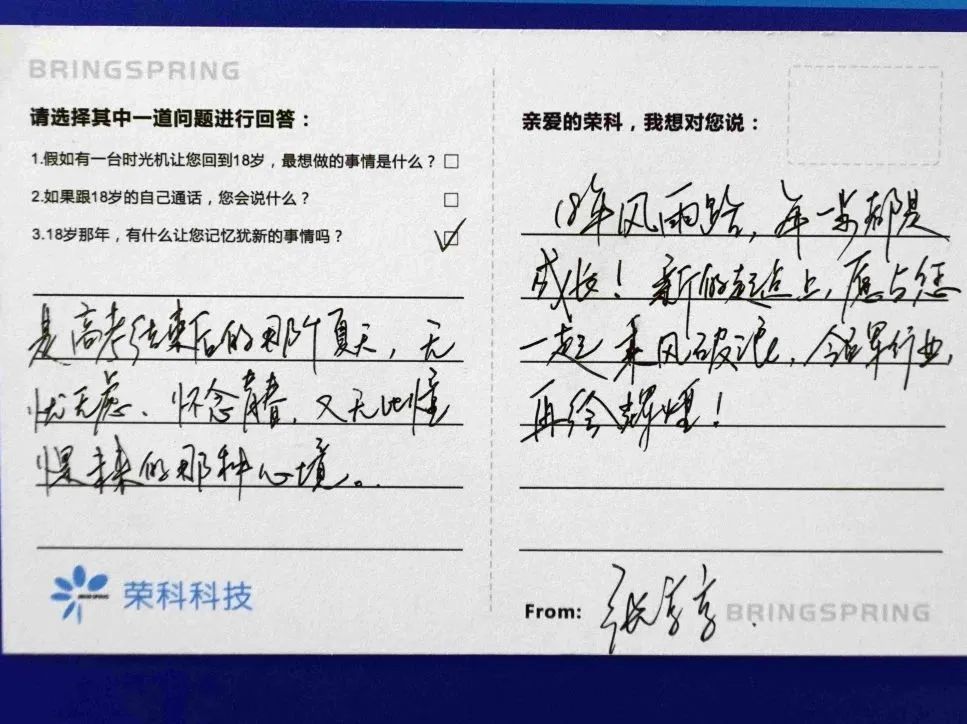 BRINGSPRING
请选择其中一道问题进行回答：
1.假如有一台时光机让您回到18岁，最想做的事情是什么？□
2.如果跟18岁的自己通话，您会说什么？ □
3.18岁那年，有什么让您记忆犹新的事情吗？ ☑
是高考结束后的那个夏天，无
忧无虑、怀念青春，又无比憧
憬未来的那种心境。
荣科科技
亲爱的荣科，我想对您说：
18年风雨路，每一步都是
成长！新的起点上，愿与您
一起乘风破浪，领军行业，
再绘辉煌！
From: 张
BRINGSPRING